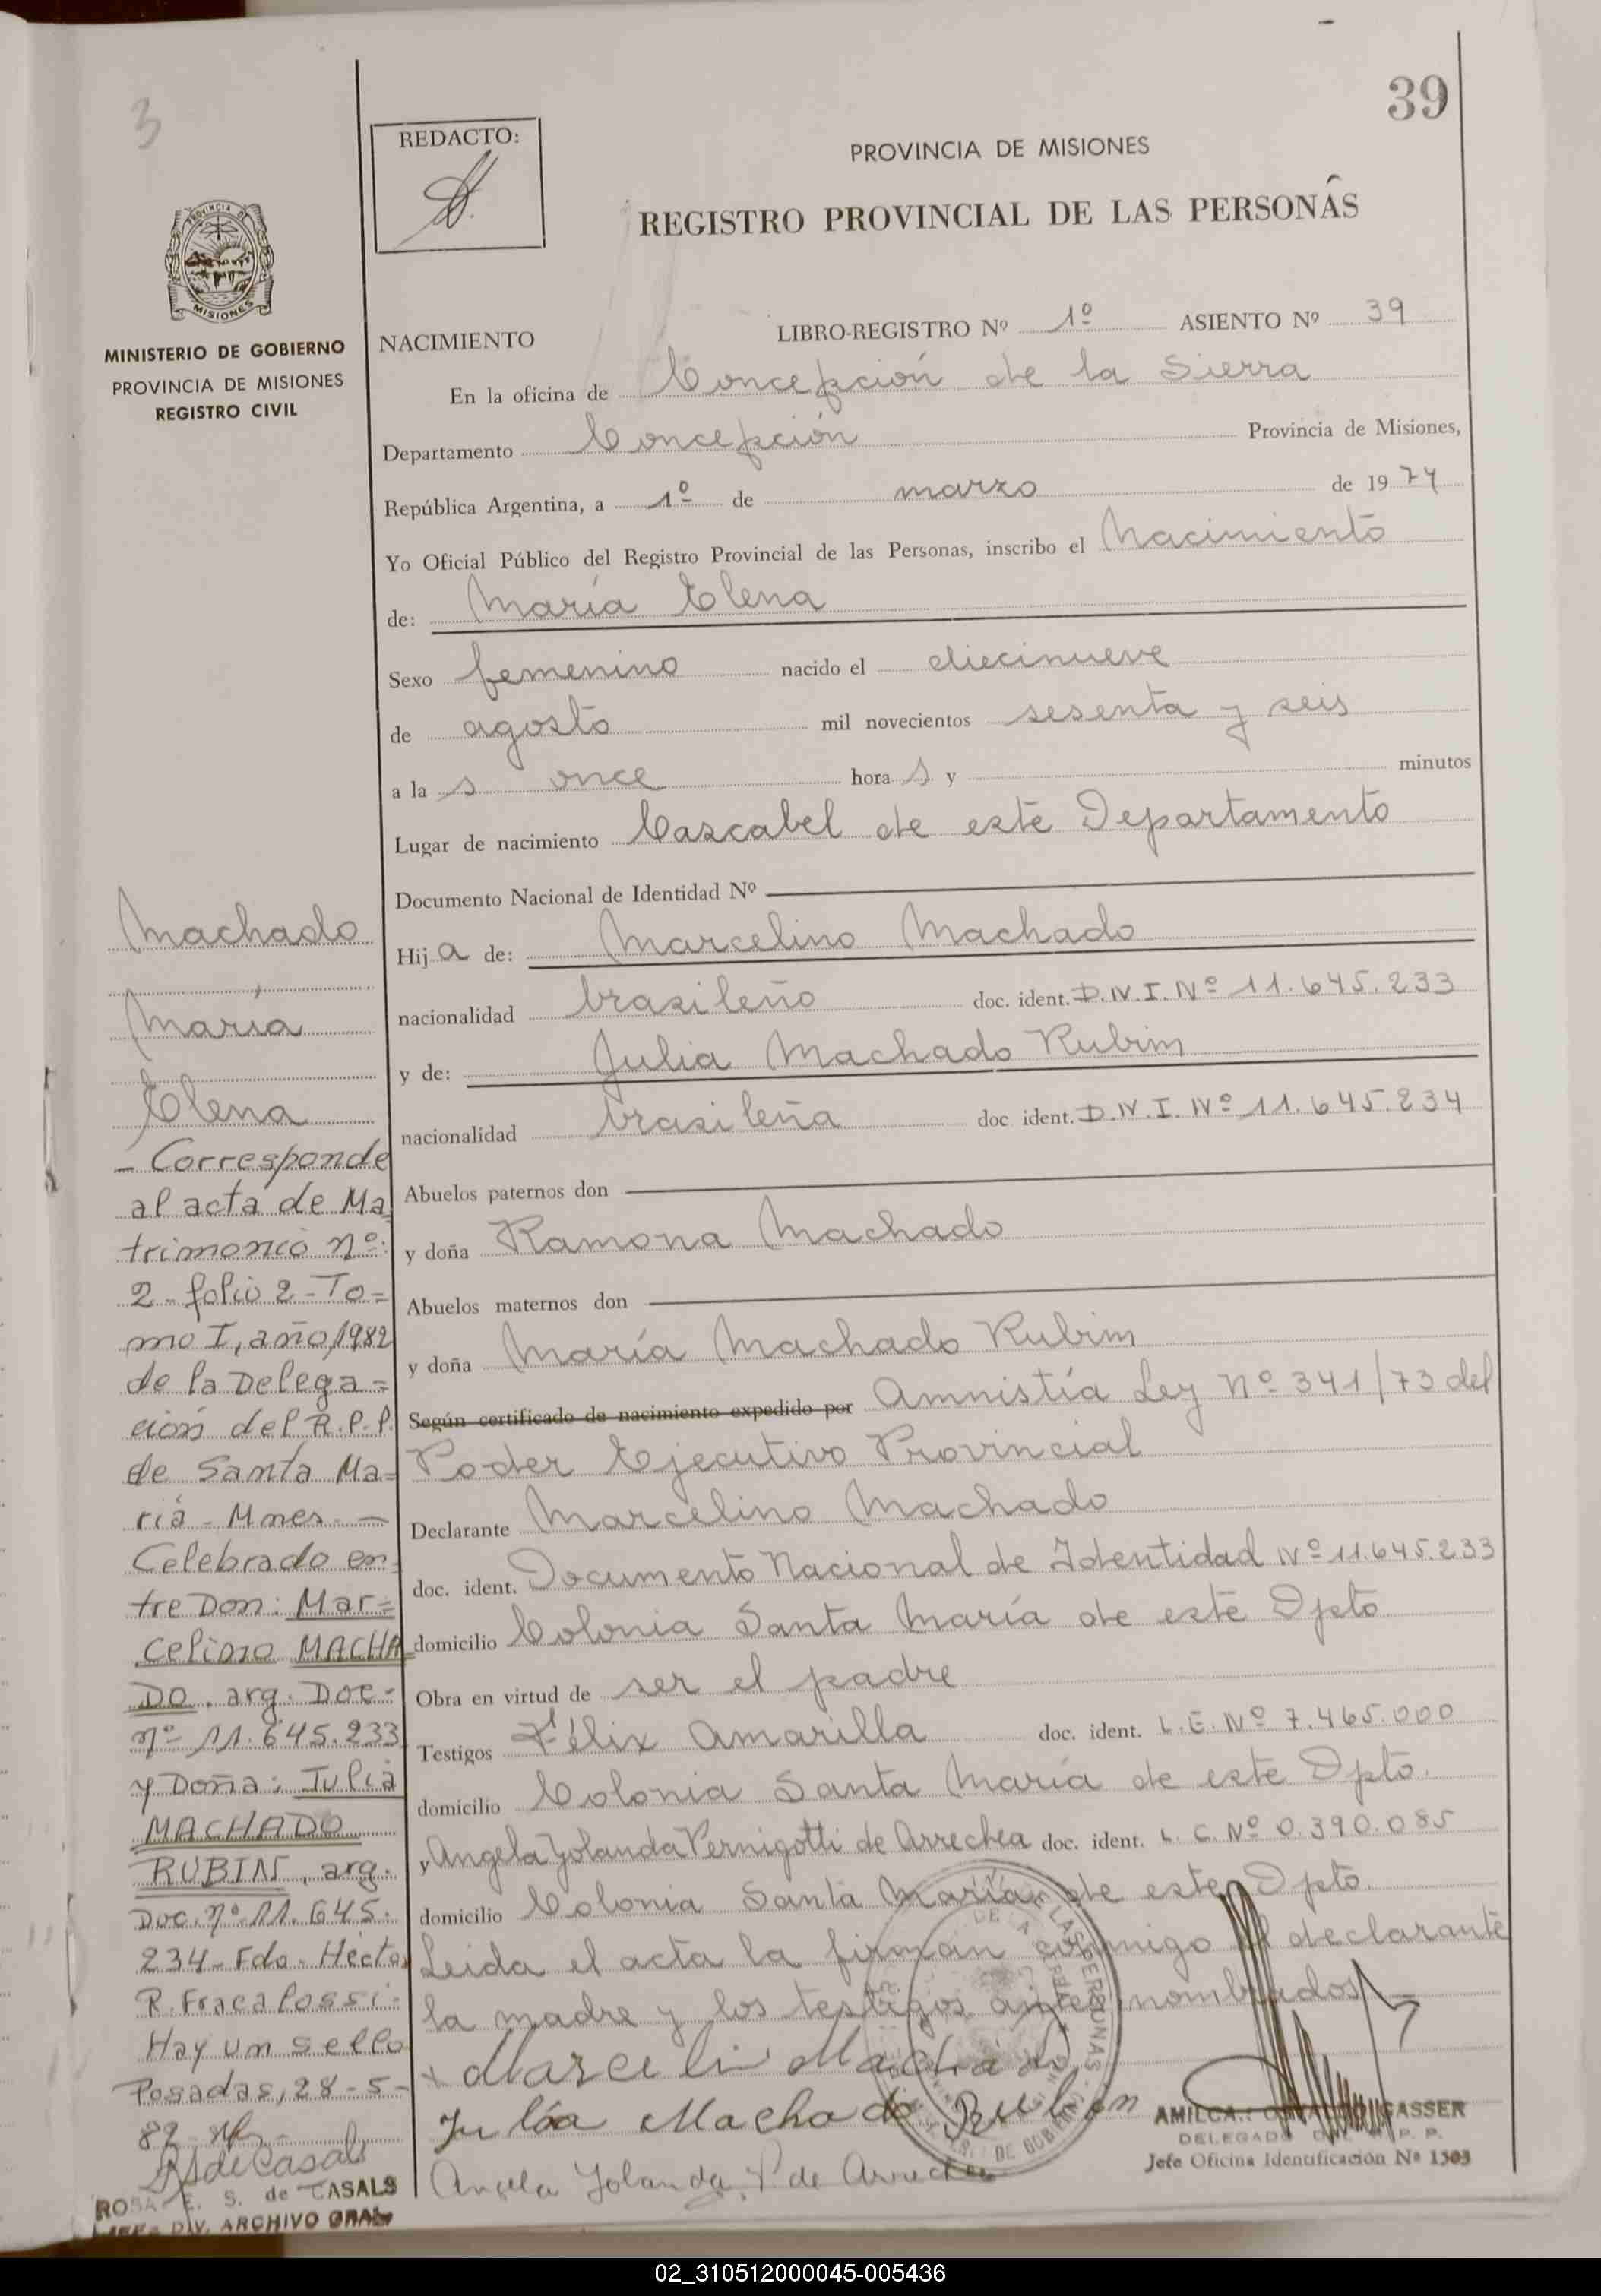 39
3
REDACTO:
PROVINCIA DE MISIONES
REGISTRO PROVINCIAL DE LAS PERSONAS
PROVINCIA DE
MISIONES
MINISTERIO DE GOBIERNO
PROVINCIA DE MISIONES
REGISTRO CIVIL
NACIMIENTO LIBRO-REGISTRO Nº 1º ASIENTO Nº 39
En la oficina de Concepción de la Sierra
Departamento Concepción Provincia de Misiones,
República Argentina, a 1º de marzo de 1974
Yo Oficial Público del Registro Provincial de las Personas, inscribo el Nacimiento
de: María Elena
Sexo femenino nacido el diecinueve
de agosto mil novecientos sesenta y seis
a la s once hora s y minutos
Lugar de nacimiento Cascabel de este Departamento
Documento Nacional de Identidad Nº
Hij a de: Marcelino Machado
nacionalidad brasileño doc. ident. D.N.I. Nº 11.645.233
y de: Julia Machado Rubim
nacionalidad brasileña doc ident. D.N.I. Nº 11.645.234
Abuelos paternos don
y doña Ramona Machado
Abuelos maternos don
y doña María Machado Rubim
Según certificado de nacimiento expedido por Amnistía Ley Nº 341/73 del
Poder Ejecutivo Provincial
Declarante Marcelino Machado
doc. ident. Documento Nacional de Identidad Nº 11.645.233
domicilio Colonia Santa María de este Dpto
Obra en virtud de ser el padre
Testigos Félix Amarilla doc. ident. L.E. Nº 7.465.000
domicilio Colonia Santa María de este Dpto.
y Angela Yolanda Pernigotti de Arrechea doc. ident. L.C. Nº 0.390.085
domicilio Colonia Santa María de este Dpto.
Leida el acta la firman conmigo el declarante
la madre y los testigos antes nombrados
Marcelin Machado
Julia Machado Rubin
Angela Yolanda P. de Arrechea
DELEGADO
Jefe Oficina Identificación Nº 1503
Machado
María
Elena
- Corresponde
al acta de Ma
trimonio nº:
2 - folio 2 - To=
mo I, año 1982
de la Delega=
ción del R.P.P.
de Santa Ma=
ría - Mnes. -
Celebrado en=
tre Don: Mar=
celino MACHA
DO, arg. Doc-
nº 11.645.233
y Doña: Julia
MACHADO
RUBIN, arg.
Doc. nº 11.645.
234 - Fdo. Hector
R. Fracalossi -
Hay un sello
Posadas, 28-5-
82
ROSA E. S. de CASALS
JEFE DIV. ARCHIVO GRAL
02_310512000045-005436